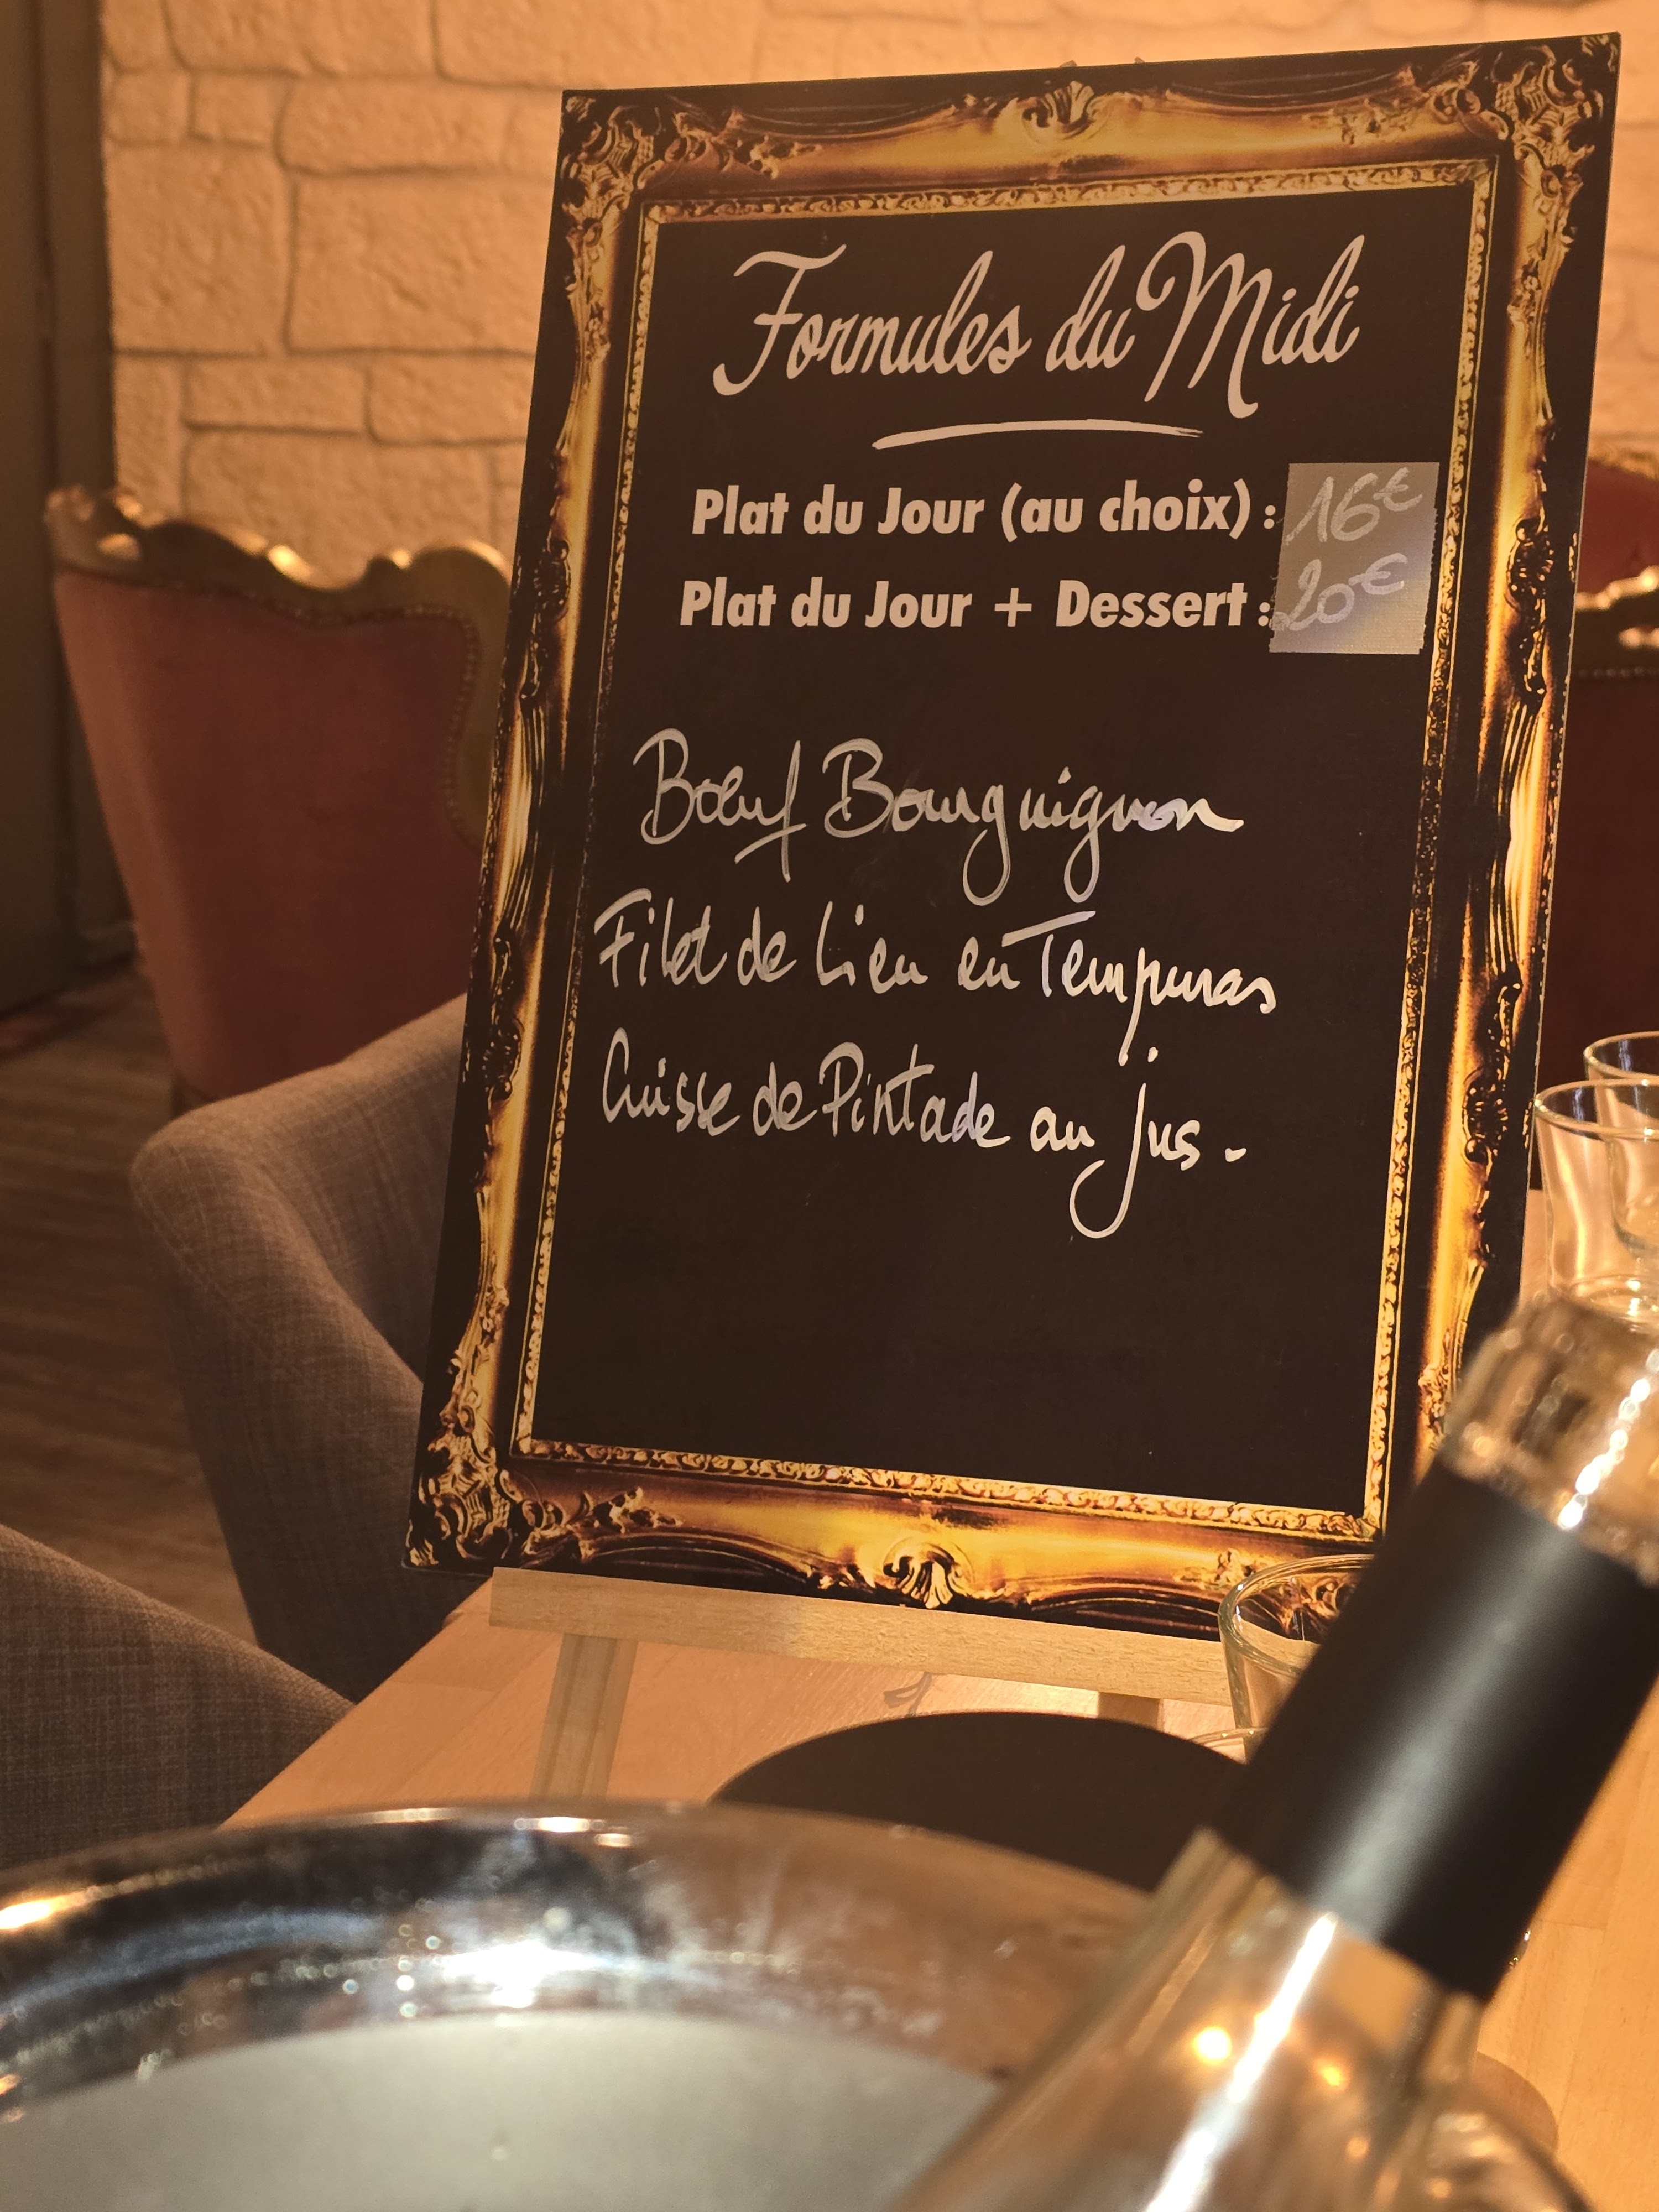 Formules du Midi
Plat du Jour (au choix) : 16€
Plat du Jour + Dessert : 20€
Bœuf Bourguignon
Filet de Lieu en Tempuras
Cuisse de Pintade au jus.